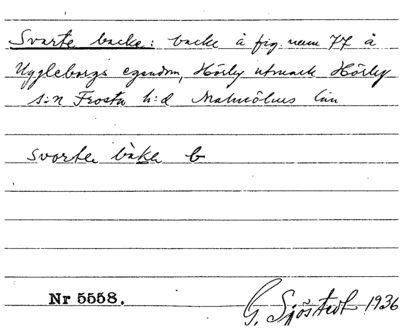 Svarte backe: backe å fig num 77 å
Uggleborgs egendom, Hörby utmark Hörby
s:n Frosta h:d Malmöhus län
svorte bàka b
Nr 5558.
G. Sjöstedt 1936